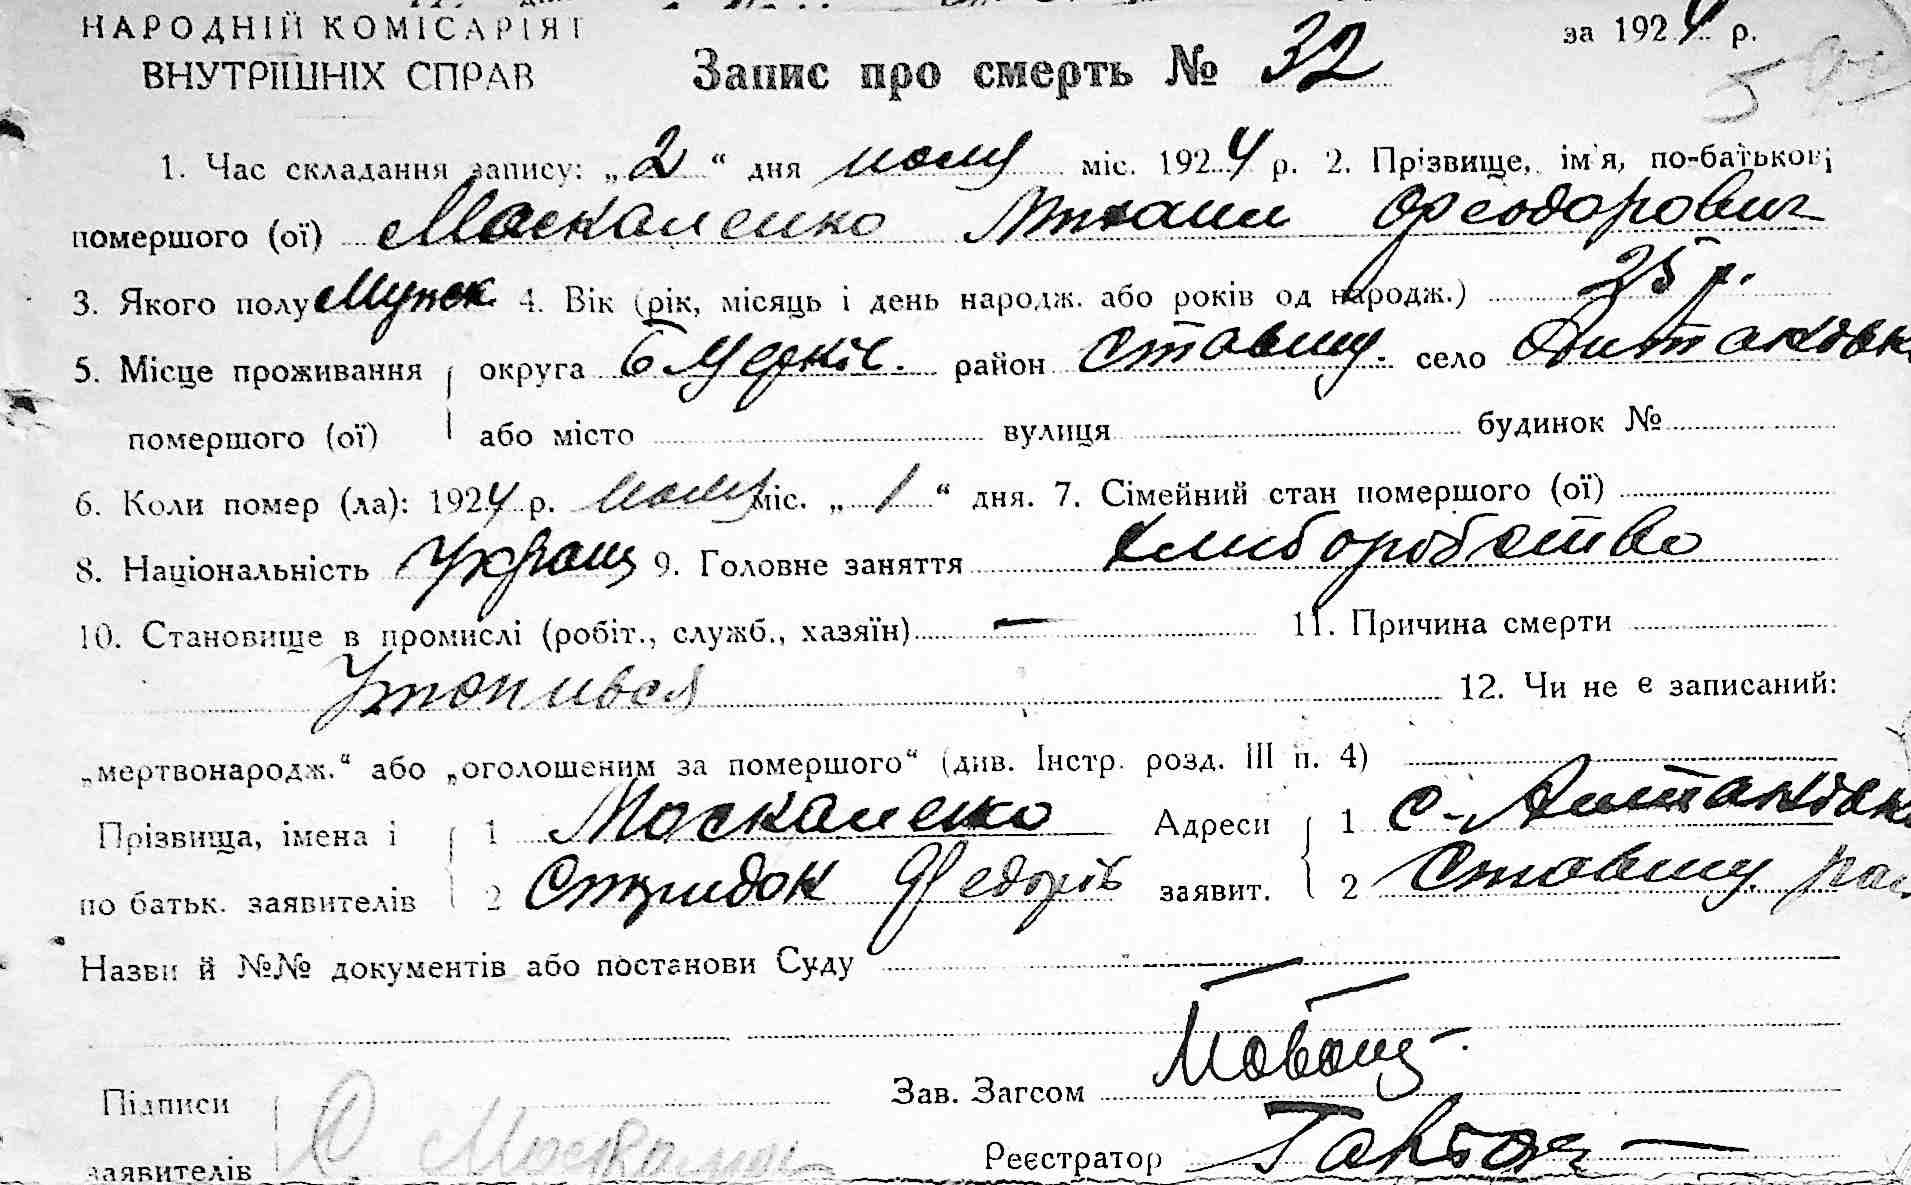 НАРОДНІЙ КОМІСАРІЯТ
ВНУТРІШНІХ СПРАВ
Запис про смерть № 32
за 1924 р.
1. Час складання запису: „2“ дня юля міс. 1924 р. 2. Прізвище, ім'я, по-батькові
помершого (ої) Москаленко Михаил Феодорович
3. Якого полу Мужск 4. Вік (рік, місяць і день народж. або років од народж.) 25 р.
5. Місце проживання округа Б Церків. район Ставищ. село Антонівка
помершого (ої) або місто вулиця будинок №
6. Коли помер (ла): 1924 р. юля міс. „1“ дня. 7. Сімейний стан помершого (ої)
8. Національність Украин 9. Головне заняття хлиборобство
10. Становище в промислі (робіт., служб., хазяїн) — 11. Причина смерти
Утопився 12. Чи не є записаний:
„мертвонародж.“ або „оголошеним за помершого“ (див. Інстр. розд. III п. 4)
Прізвища, імена і 1 Москаленко Адреси 1 с. Антонівка
по батьк. заявителів 2 Спиридон Федорів заявит. 2 Ставищ. рай
Назви й №№ документів або постанови Суду
Зав. Загсом
Підписи
Реєстратор
заявителів С Москален